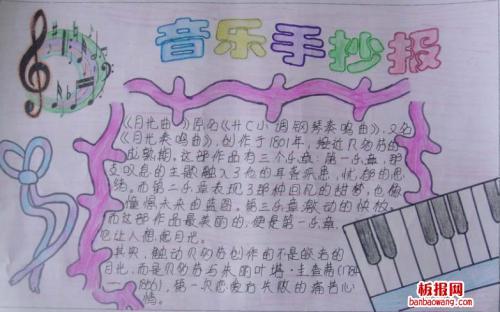 音乐手抄报
《月光曲》原名《升C小调钢琴奏鸣曲》,又名
《月光奏鸣曲》,创作于1801年,接近贝多芬的
成熟期。这部作品有三个乐章:第一乐章,那
支叹息的主歌融入了他的耳音疾患,忧郁的思
绪。而第二乐章表现了那种回忆的甜梦,也像
憧憬未来的蓝图。第三乐章激动的快板
而这部作品最美丽的,便是第一乐章,
它让人想起月光。
其实,触动贝多芬创作的不是皎老的
月光,而是贝多芬与朱丽叶塔·圭查蒂(1784
——1856),第一次恋爱后失败的痛苦心
情。
板报网
banbaowang.com